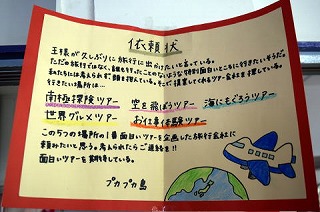 依頼状
王様が久しぶりに旅行に出かけたいと言っている。
ただの旅行ではなく、誰も行ったことのないような特別面白いところに行きたいそうだ。
私たちには考えられず頭を抱えている。そこで提案してくれる ツアー会社を探している。
行きたい場所は…
南極探険ツアー 空を飛ぼうツアー 海にもぐろうツアー
世界グルメツアー お仕事体験ツアー
この5つの場所の1番面白いツアーを企画した旅行会社に
頼みたいと思う。考えられたらご連絡を!!
面白いツアーを期待している。
プカプカ島